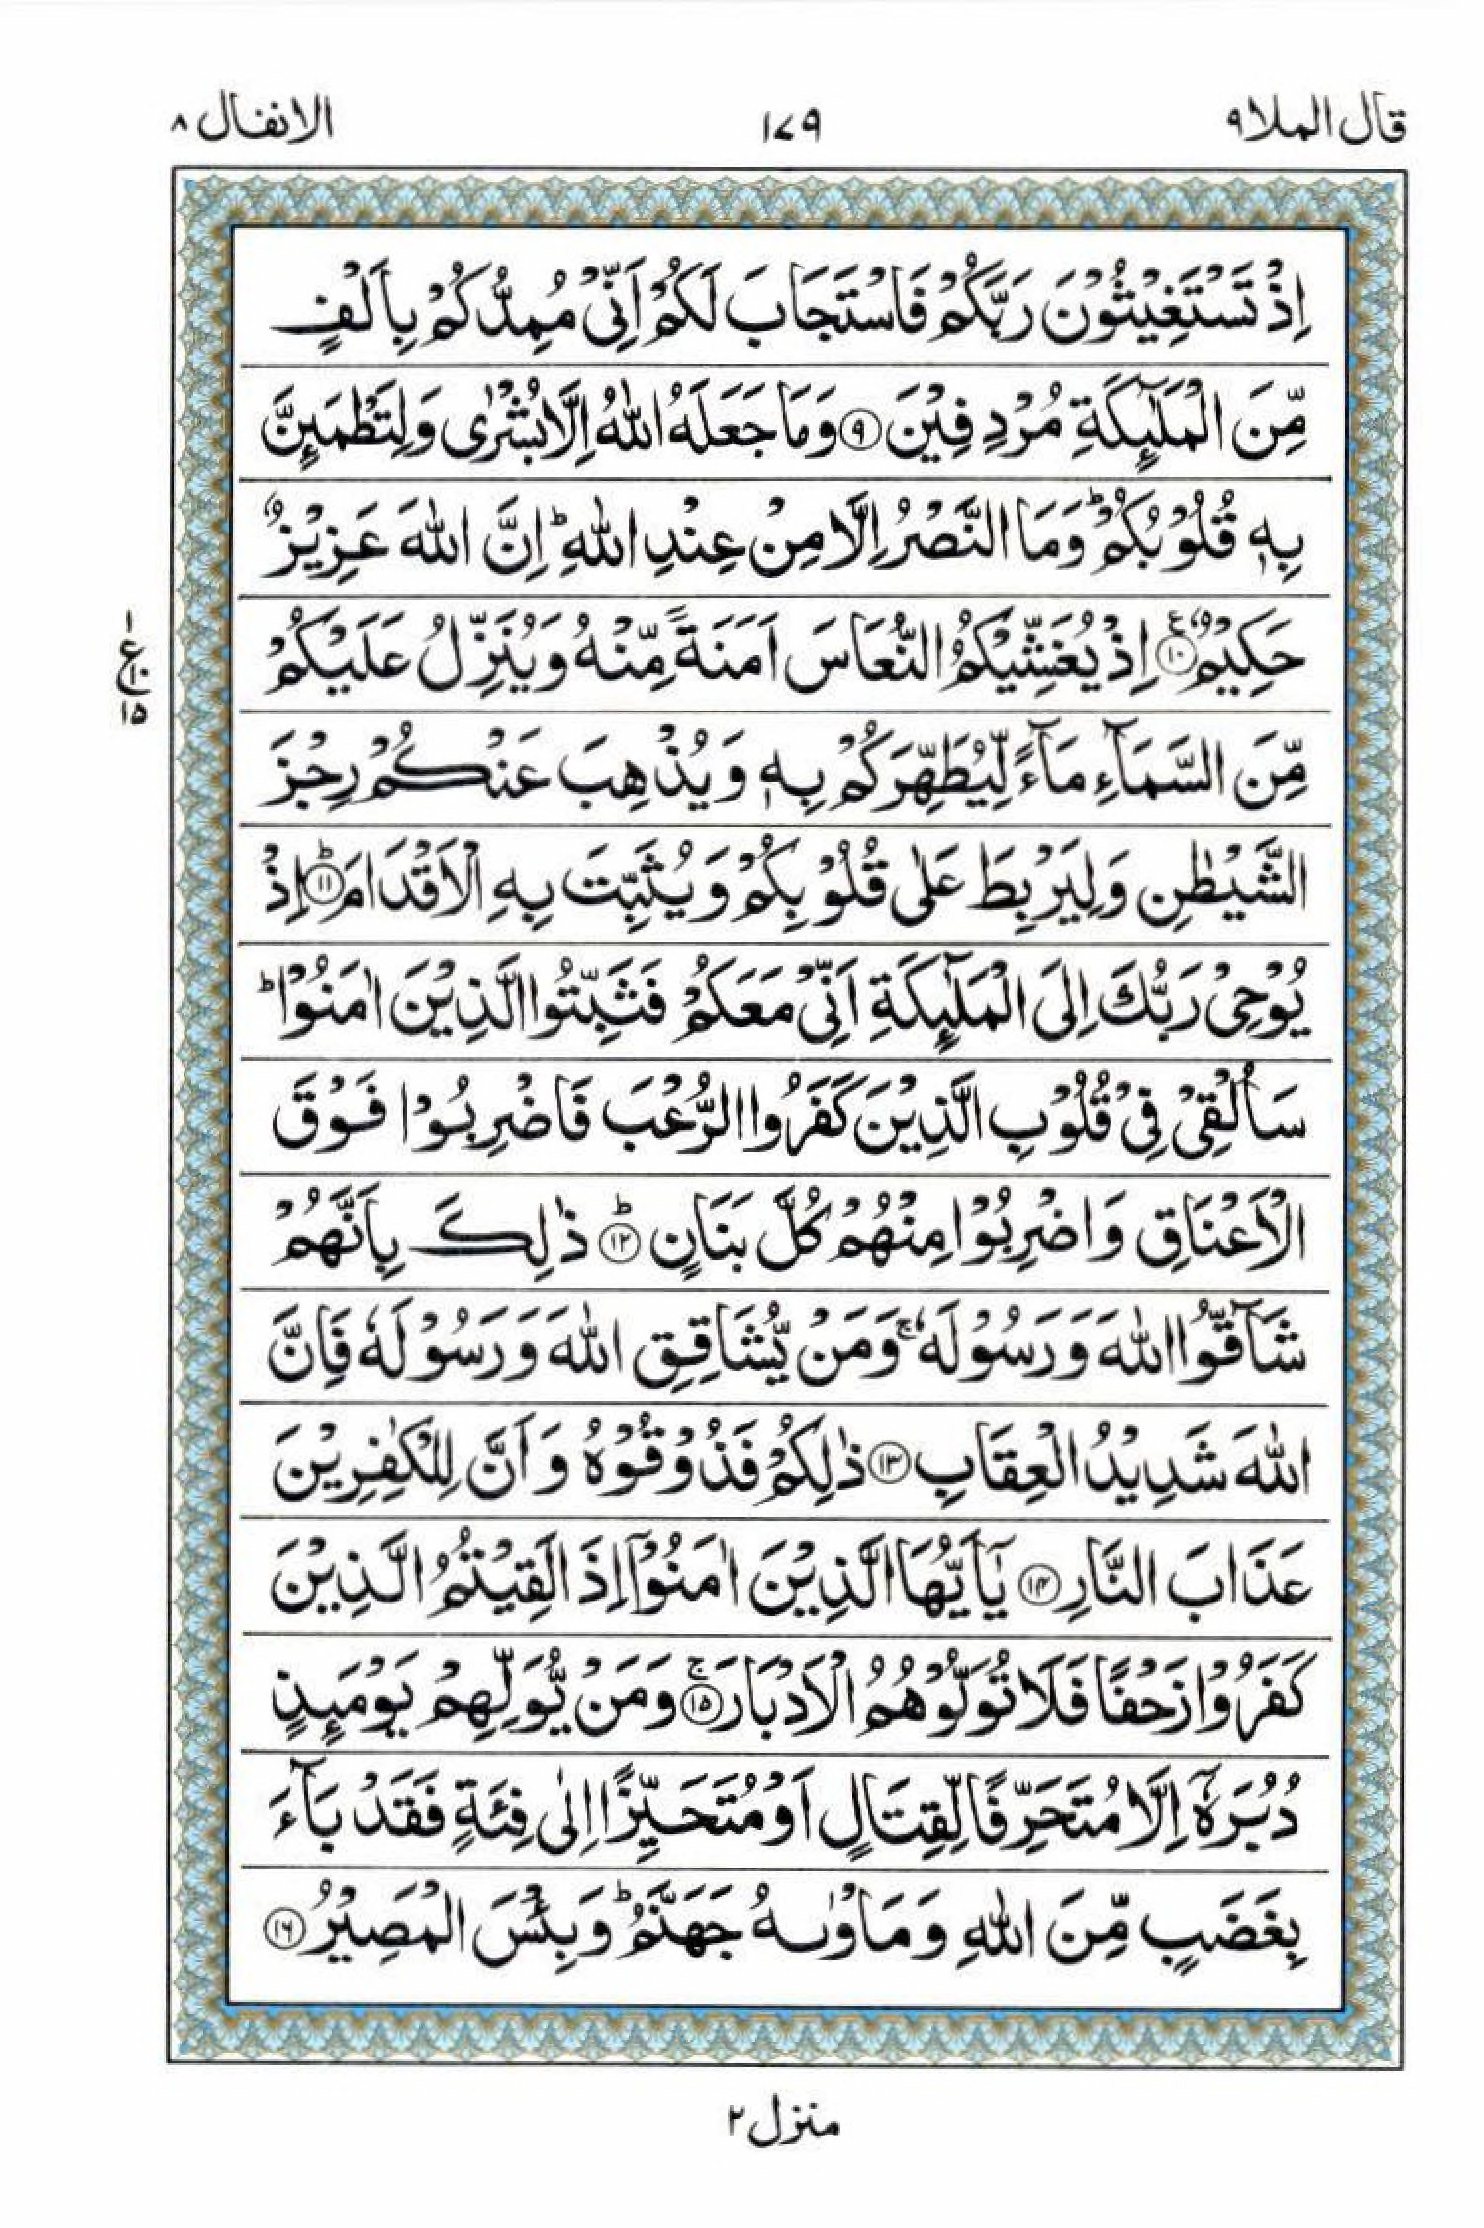 قال الملا ٩
١٧٩
الانفال ٨
اِذْ تَسْتَغِيْثُوْنَ رَبَّكُمْ فَاسْتَجَابَ لَكُمْ اَنِّىْ مُمِدُّكُمْ بِاَلْفٍ
مِّنَ الْمَلٰٓئِكَةِ مُرْدِفِيْنَ ۝٩ وَمَا جَعَلَهُ اللّٰهُ اِلَّا بُشْرٰى وَلِتَطْمَئِنَّ
بِهٖ قُلُوْبُكُمْ ؕ وَمَا النَّصْرُ اِلَّا مِنْ عِنْدِ اللّٰهِ ؕ اِنَّ اللّٰهَ عَزِيْزٌ
حَكِيْمٌ ۝١٠ اِذْ يُغَشِّيْكُمُ النُّعَاسَ اَمَنَةً مِّنْهُ وَيُنَزِّلُ عَلَيْكُمْ
ع
١
١٠
١٥
مِّنَ السَّمَآءِ مَآءً لِّيُطَهِّرَكُمْ بِهٖ وَيُذْهِبَ عَنْكُمْ رِجْزَ
الشَّيْطٰنِ وَلِيَرْبِطَ عَلٰى قُلُوْبِكُمْ وَيُثَبِّتَ بِهِ الْاَقْدَامَ ؕ۝١١ اِذْ
يُوْحِىْ رَبُّكَ اِلَى الْمَلٰٓئِكَةِ اَنِّىْ مَعَكُمْ فَثَبِّتُوا الَّذِيْنَ اٰمَنُوْا ؕ
سَاُلْقِىْ فِىْ قُلُوْبِ الَّذِيْنَ كَفَرُوا الرُّعْبَ فَاضْرِبُوْا فَوْقَ
الْاَعْنَاقِ وَاضْرِبُوْا مِنْهُمْ كُلَّ بَنَانٍ ؕ۝١٢ ذٰلِكَ بِاَنَّهُمْ
شَآقُّوا اللّٰهَ وَرَسُوْلَهٗ ۚ وَمَنْ يُّشَاقِقِ اللّٰهَ وَرَسُوْلَهٗ فَاِنَّ
اللّٰهَ شَدِيْدُ الْعِقَابِ ۝١٣ ذٰلِكُمْ فَذُوْقُوْهُ وَاَنَّ لِلْكٰفِرِيْنَ
عَذَابَ النَّارِ ۝١٤ يٰٓاَيُّهَا الَّذِيْنَ اٰمَنُوْٓا اِذَا لَقِيْتُمُ الَّذِيْنَ
كَفَرُوْا زَحْفًا فَلَا تُوَلُّوْهُمُ الْاَدْبَارَ ۚ۝١٥ وَمَنْ يُّوَلِّهِمْ يَوْمَئِذٍ
دُبُرَهٗٓ اِلَّا مُتَحَرِّفًا لِّقِتَالٍ اَوْ مُتَحَيِّزًا اِلٰى فِئَةٍ فَقَدْ بَآءَ
بِغَضَبٍ مِّنَ اللّٰهِ وَمَاْوٰىهُ جَهَنَّمُ ؕ وَبِئْسَ الْمَصِيْرُ ۝١٦
منزل ٢